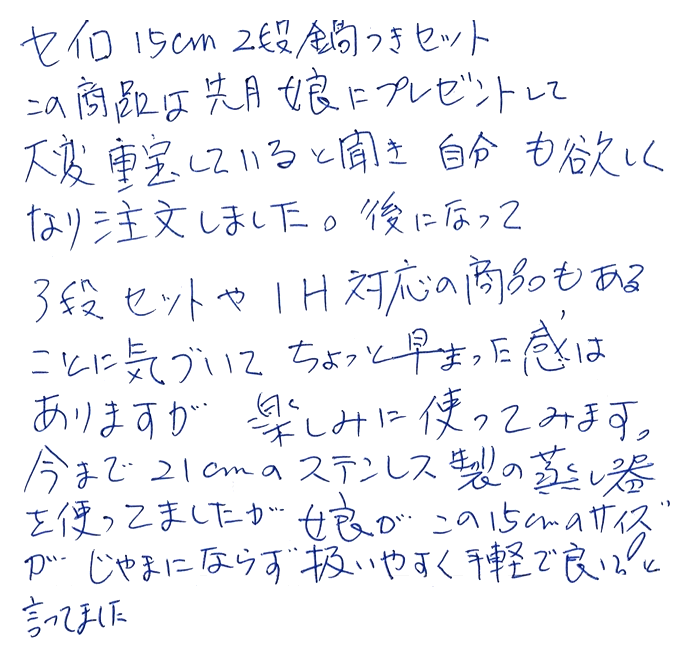 セイロ 15cm 2段鍋つきセット
この商品は先月娘にプレゼントして
大変重宝していると聞き 自分も欲しく
なり注文しました。後になって
3段セットや IH対応の商品もある
ことに気づいて ちょっと早まった感は
ありますが 楽しみに使ってみます。
今まで21cmのステンレス製の蒸し器
を使ってましたが 娘がこの15cmのサイズ
が じゃまにならず扱いやすく手軽で良い。と
言ってました